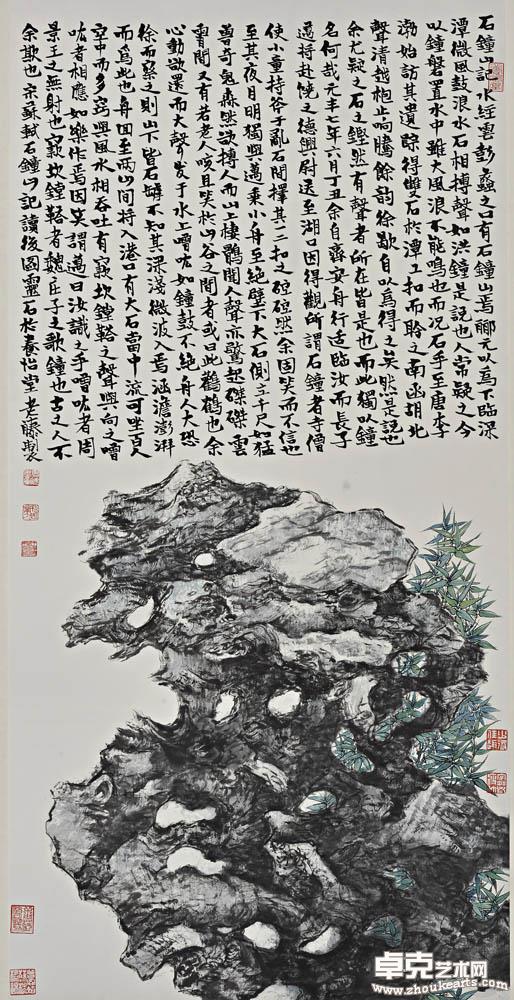 石鐘山記水經雲彭蠡之口有石鐘山焉酈元以爲下臨深
潭微風鼓浪水石相搏聲如洪鐘是說也人常疑之今
以鐘磬置水中雖大風浪不能鳴也而况石乎至唐李
渤始訪其遺踪得雙石於潭上扣而聆之南函胡北
聲清越枹止響騰餘韵徐歇自以爲得之矣然是說也
余尤疑之石之鏗然有聲者所在皆是也而此獨以鐘
名何哉元丰七年六月丁丑余自齊安舟行适臨汝而長子
邁將赴饒之德興尉送至湖口因得觀所謂石鐘者寺僧
使小童持斧于亂石間擇其一二扣之硿硿然余固笑而不信也
至其夜月明獨與邁乘小舟至絕壁下大石側立千尺如猛
獸奇鬼森然欲搏人而山上棲鶻聞人聲亦驚起磔磔雲
霄間又有若老人咳且笑於山谷之間者或曰此鸛鶴也余
心動欲還而大聲发于水上噌吰如鐘鼓不絕舟人大恐
徐而察之則山下皆石罅不知其深淺微波入焉涵澹澎湃
而爲此也舟回至兩山間將入港口有大石當中流可坐百人
空中而多竅與風水相吞吐有窾坎鏜鞳之聲與向之噌
吰者相應如樂作焉因笑謂邁曰汝識之乎噌吰者周
景王之無射也窾坎鏜鞳者魏庄子之歌鐘也古之人不
余欺也宋蘇軾石鐘山記讀後圖靈石於養怡堂老滕製
卓克艺术网
www.zhoukearts.com